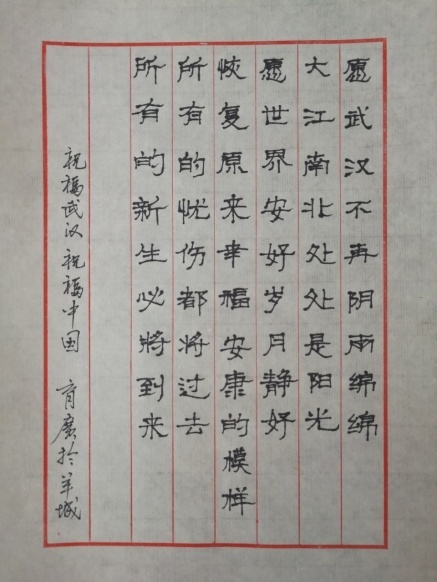 愿武汉不再阴雨绵绵
大江南北处处是阳光
愿世界安好岁月静好
恢复原来幸福安康的模样
所有的忧伤都将过去
所有的新生必将到来
祝福武汉 祝福中国 育广於羊城